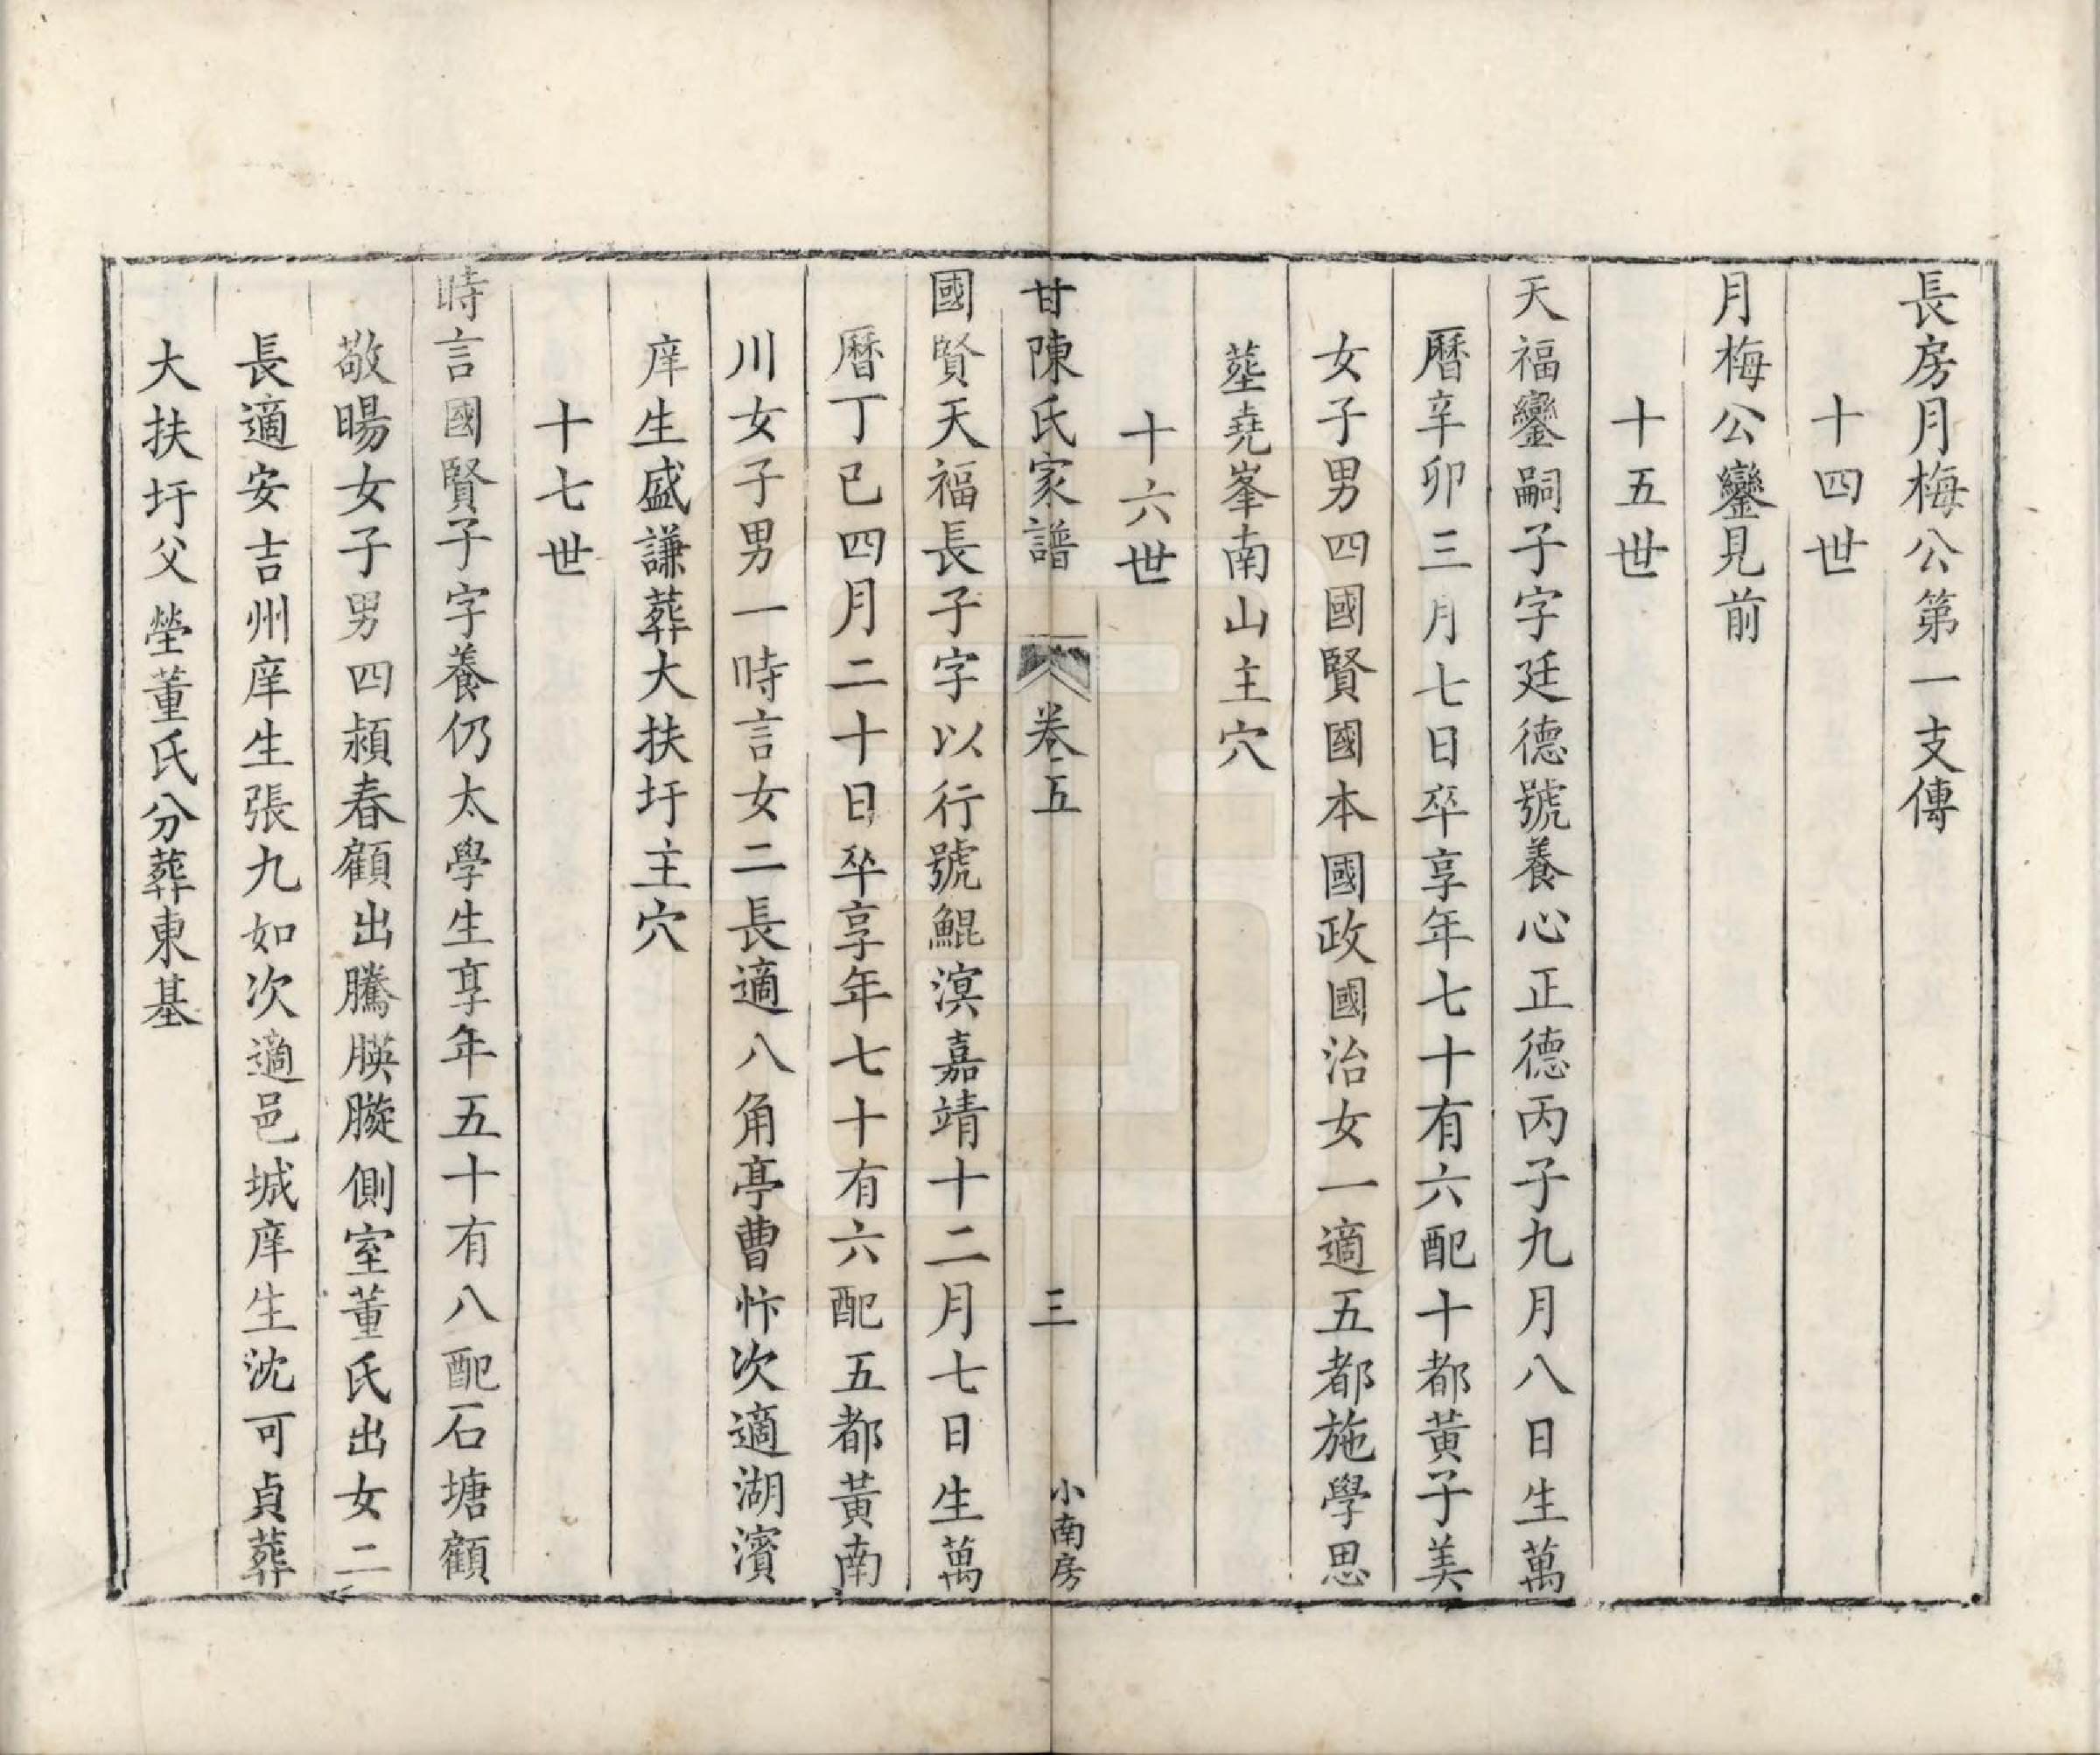 長房月梅公第一支傳
十四世
月梅公鑾見前
十五世
天福鑾嗣子字廷德號養心正德丙子九月八日生萬
曆辛卯三月七日卒享年七十有六配十都黃子美
女子男四國賢國本國政國治女一適五都施學思
塟堯峯南山主穴
十六世
甘陳氏家譜 卷五 三 小南房
國賢天福長子字以行號鯤溟嘉靖十二月七日生萬
曆丁巳四月二十日卒享年七十有六配五都黃南
川女子男一時言女二長適八角亭曹忭次適湖濱
庠生盛謙葬大扶圩主穴
十七世
時言國賢子字養仍太學生享年五十有八配石塘顧
敬暘女子男四熲春顧出騰朠朡側室董氏出女二
長適安吉州庠生張九如次適邑城庠生沈可貞葬
大扶圩父塋董氏分葬東基